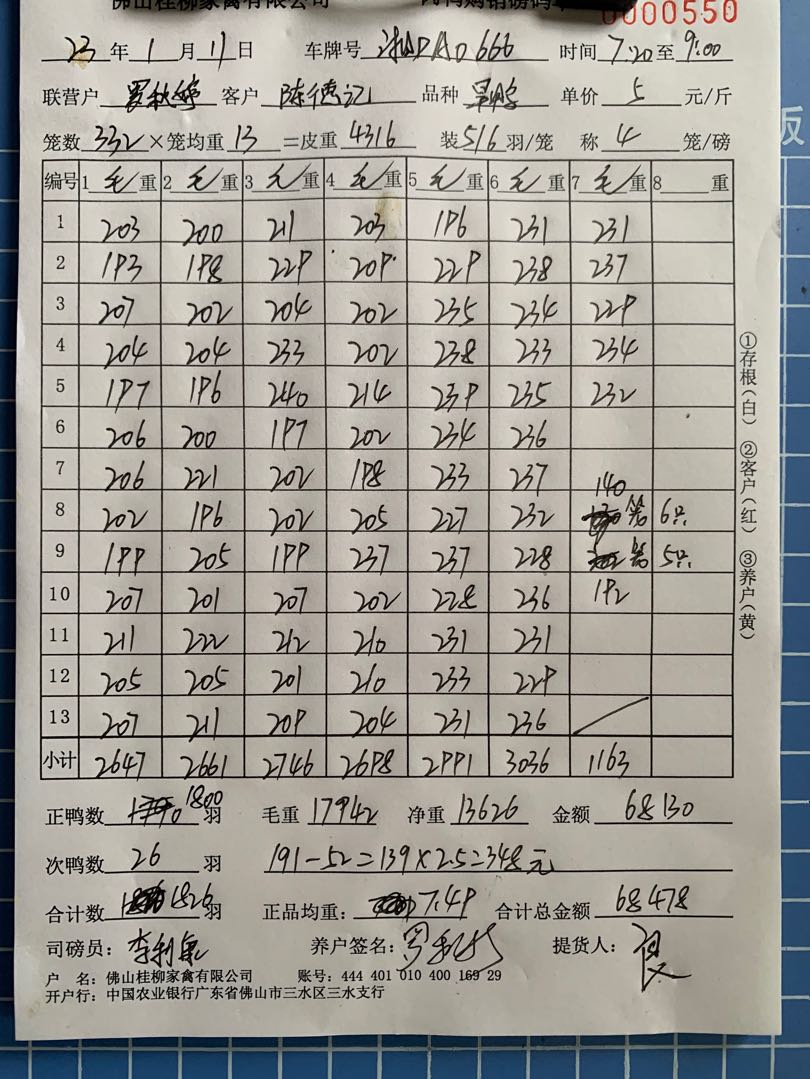 佛山桂柳家禽有限公司
0000550
23 年 1 月 11 日 车牌号 666 时间 7:20 至 9:00
联营户 罗秋婷 客户 陈德记 品种 单价 5 元/斤
笼数 332 ×笼均重 13 =皮重 4316 装 5/6 羽/笼 称 4 笼/磅
编号 1 毛 重 2 毛 重 3 毛 重 4 毛 重 5 毛 重 6 毛 重 7 毛 重 8 重
1 203 200 211 203 196 231 231
2 193 198 229 209 229 238 237
3 207 202 204 202 235 234 229
4 204 204 233 202 238 233 234
5 197 196 240 214 239 235 232
6 206 200 197 202 234 236
7 206 221 202 198 233 237 140
8 202 196 202 205 227 232 6只
9 199 205 199 237 237 228 5只
10 207 201 207 202 228 236 192
11 211 222 212 210 231 231
12 205 205 201 210 233 229
13 207 211 209 204 231 236
小计 2647 2661 2746 2698 2991 3036 1163
①存根(白) ②客户(红) ③养户(黄)
正鸭数 1800 羽 毛重 17942 净重 13626 金额 68130
次鸭数 26 羽 191-52=139×2.5=348元
合计数 1826 羽 正品均重: 7.49 合计总金额 68478
司磅员: 养户签名: 提货人:
户 名: 佛山桂柳家禽有限公司 账号: 444 401 010 400 169 29
开户行: 中国农业银行广东省佛山市三水区三水支行